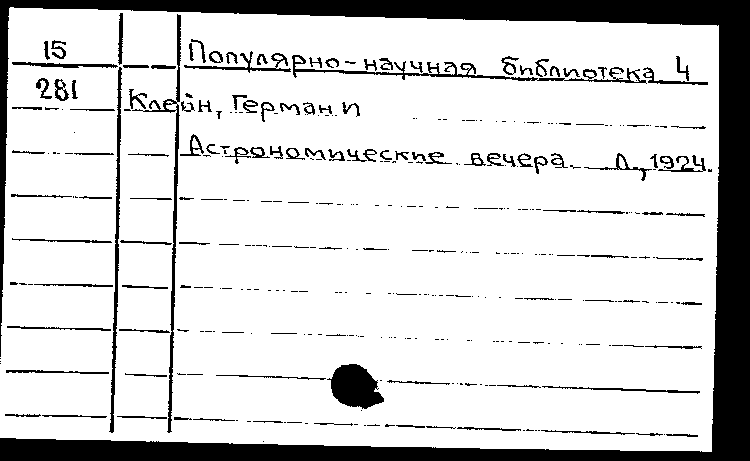 15 Популярно-научная библиотека 4
281 Клейн, Германн
Астрономические вечера. Л., 1924.